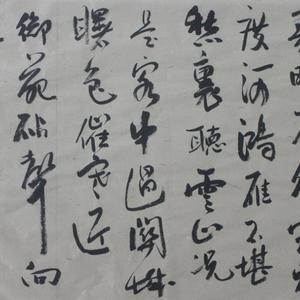 度河鴻雁不堪
愁裏聽雲山況
是客中過關城
曙色催寒近
御苑砧聲向